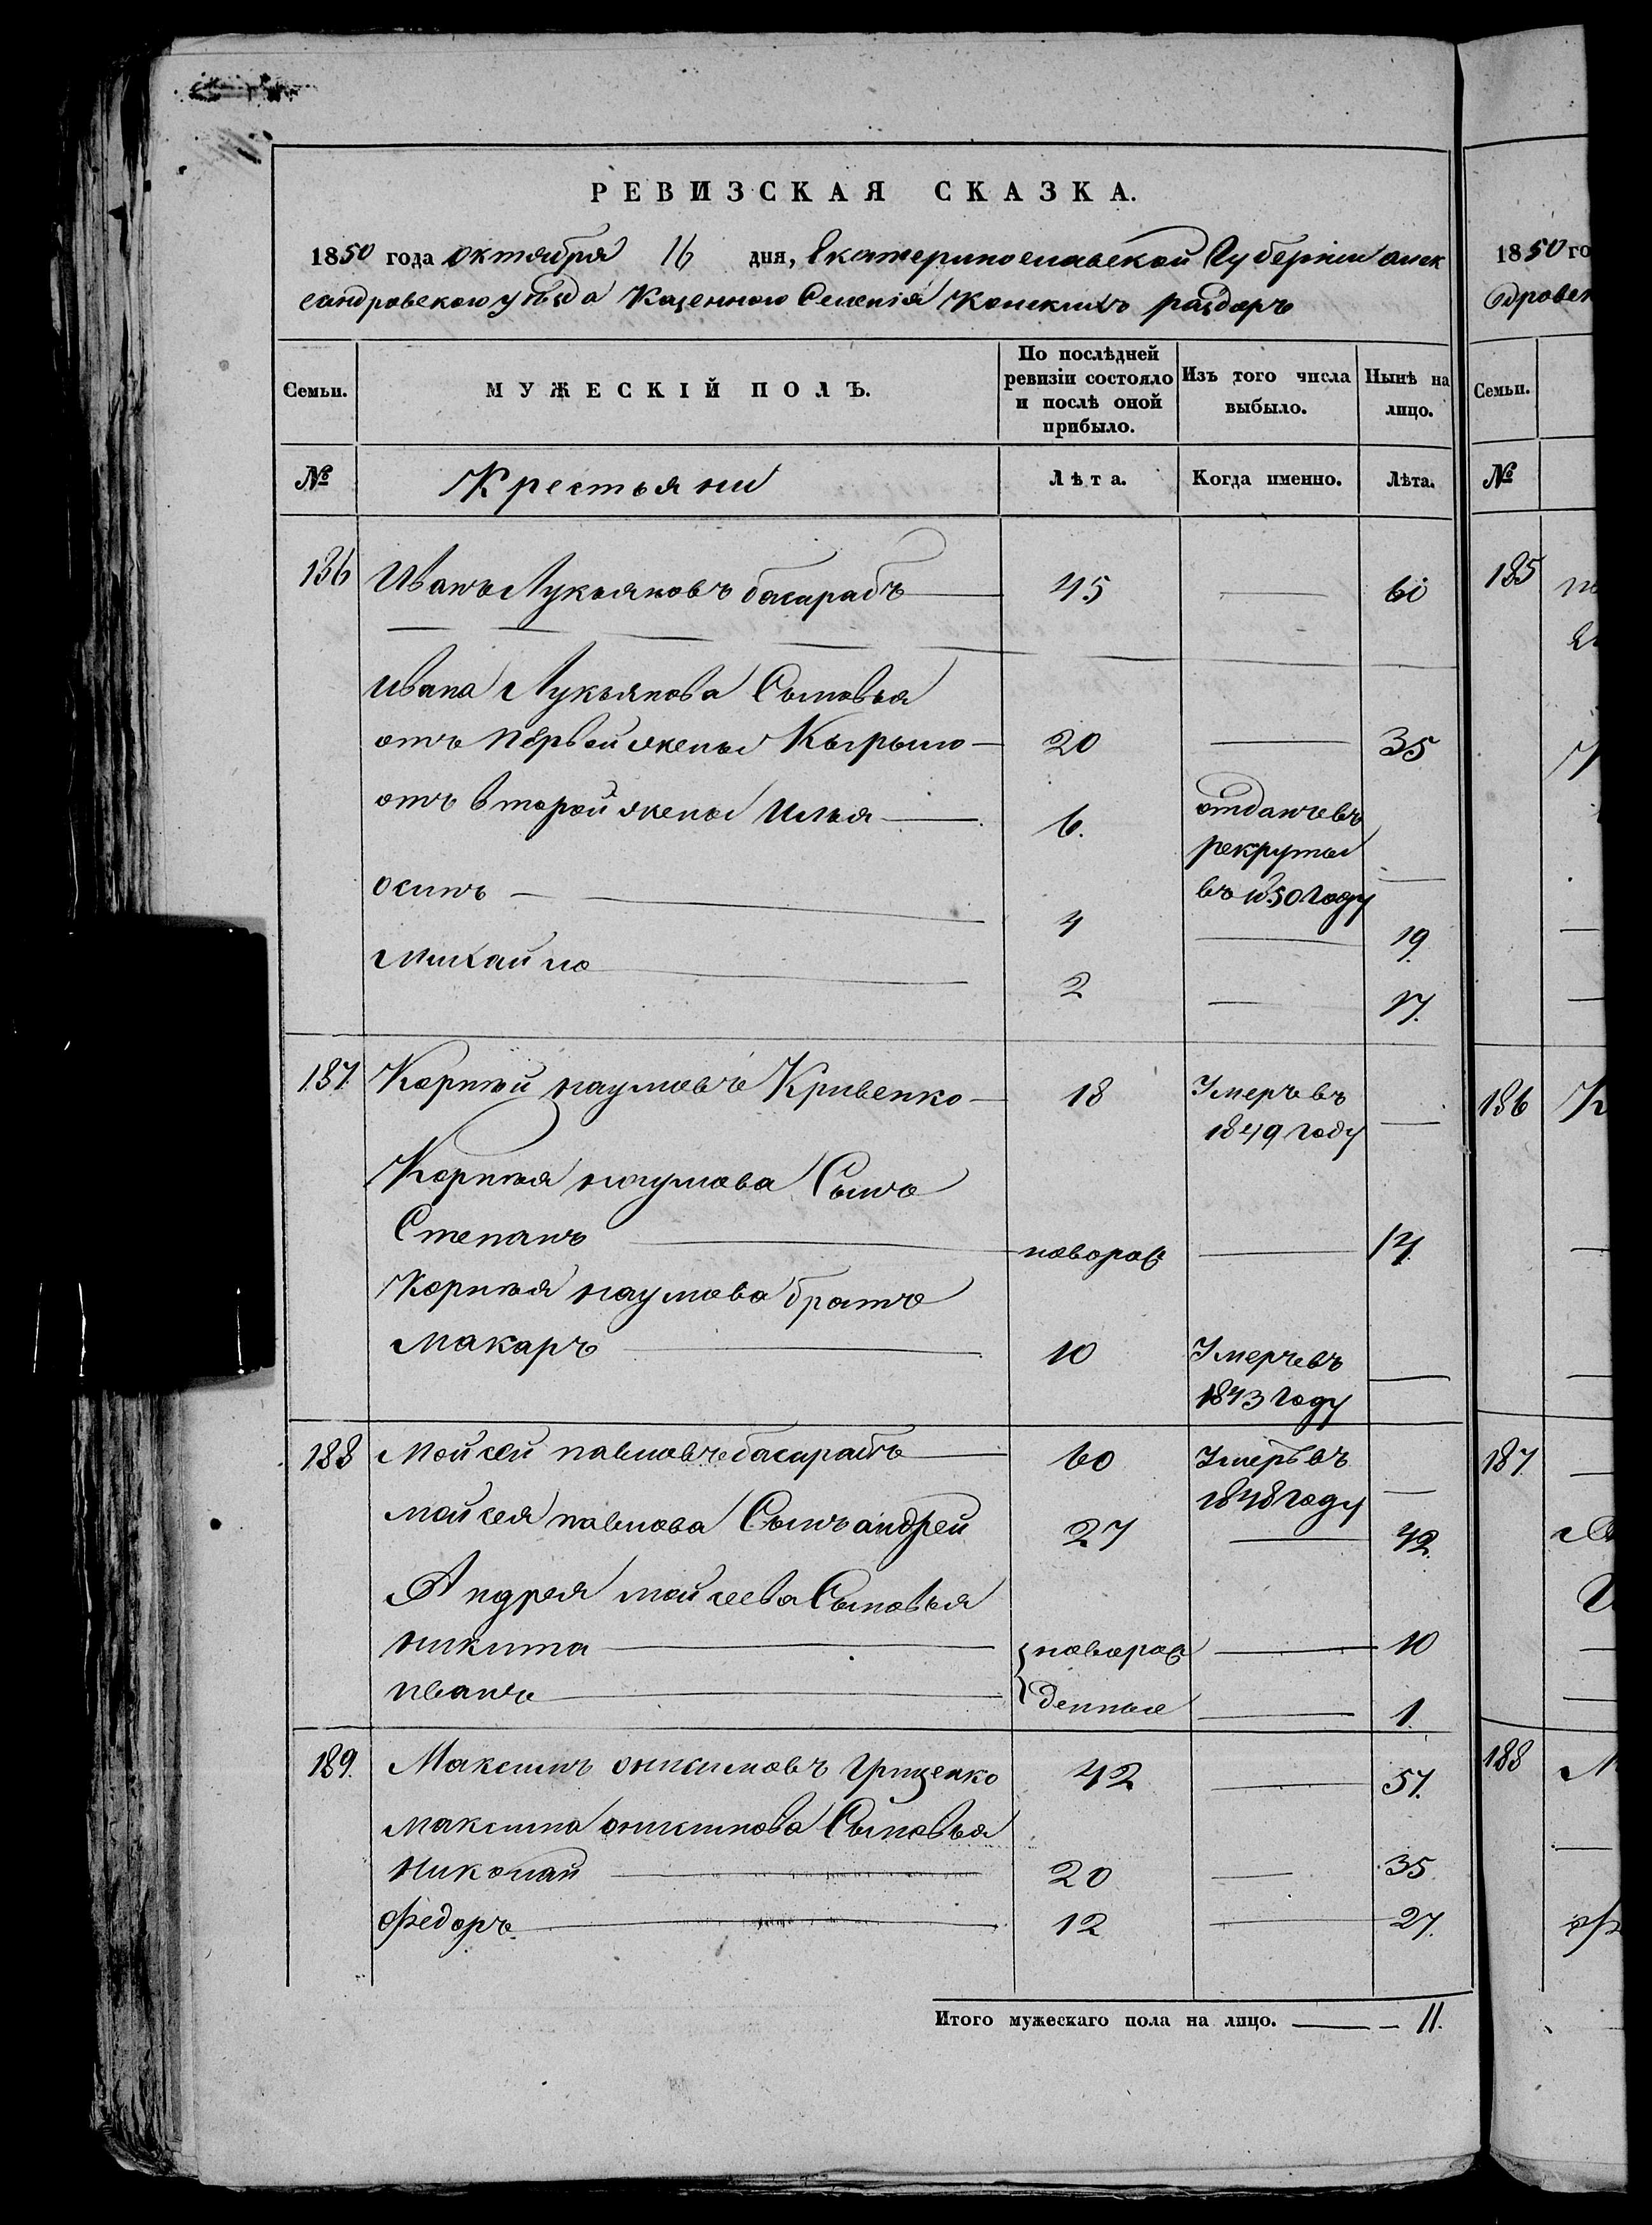 РЕВИЗСКАЯ СКАЗКА.
1850 года октября 16 дня, Екатеринославской Губернии алек
сандровского уѣзда Казенного Селенія Конскихъ раздоръ
Семьи. МУЖЕСКІЙ ПОЛЪ. По послѣдней ревизіи состояло и послѣ оной прибыло. Изъ того числа выбыло. Нынѣ на лицо.
№ Крестьяни Лѣта. Когда именно. Лѣта.
186 Иванъ Лукьяновъ басарабъ 45 — 60
Ивана Лукьянова Сыновья
отъ первой жены Кырыло 20 — 35
отъ второй жены Илья 6. отданъ въ
рекруты
въ 1850 году —
осипъ 4 — 19.
Михайло 2 — 17.
187. Корнѣй наумовъ Кривенко 18 Умеръ въ
1849 году —
Корнѣя наумова Сынъ
Степанъ новорож — 14.
Корнѣя наумова братъ
Макаръ 10 Умеръ въ
1843 году —
188 Мойсей павловъ басарабъ 60 Умеръ въ
1848 году —
мойсея павлова Сынъ андрей 27 — 42.
Андрея мойсеева Сыновья
никита новорож — 10
иванъ денные — 1.
189. Максимъ онисимовъ Гриценко 42 — 57.
максима онисимова Сыновья
николай 20 — 35.
Федоръ 12 — 27.
Итого мужескаго пола на лицо. — 11.
1850 го
дровск
Семьи.
№
185
186
187.
188